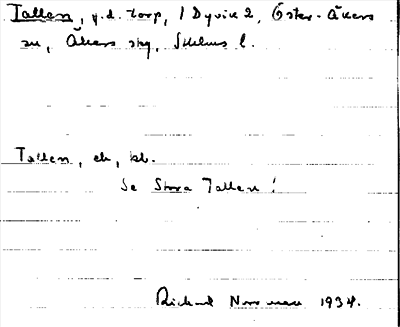 Tallen, f.d. torp, 1 Dyvik 2, Öster-Åkers
sn, Åkers skg, Sthlms l.
Tallen, ek, kb.
Se Stora Tallen!
Rickard Norrman 1934.